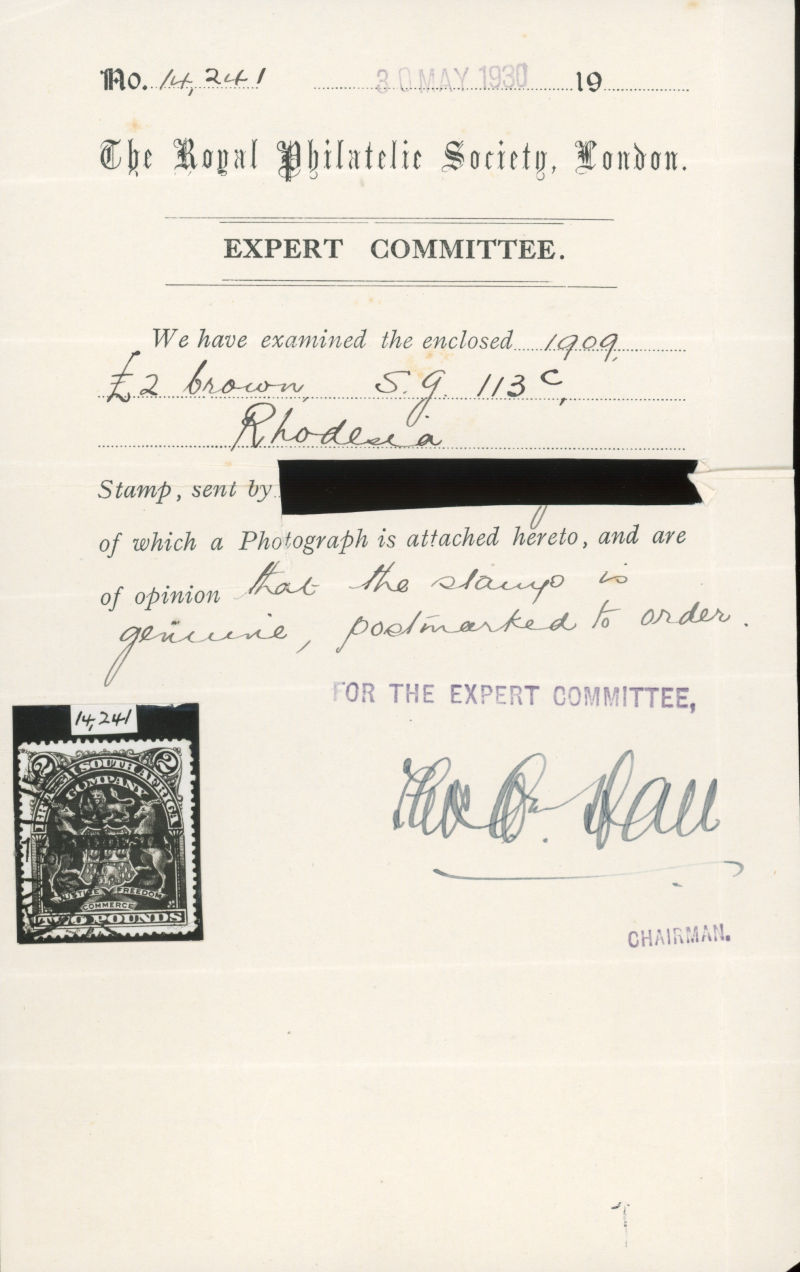 No. 14,241 30 MAY 1930 19
The Royal Philatelic Society, London.
EXPERT COMMITTEE.
We have examined the enclosed 1909,
£2 brown, S.G. 113c,
Rhodesia
Stamp, sent by
of which a Photograph is attached hereto, and are
of opinion that the stamp is
genuine, postmarked to order.
FOR THE EXPERT COMMITTEE,
14,241
2 2
BRITISH SOUTH AFRICA
COMPANY
RHODESIA
JUSTICE FREEDOM
COMMERCE
TWO POUNDS
Hall
CHAIRMAN.